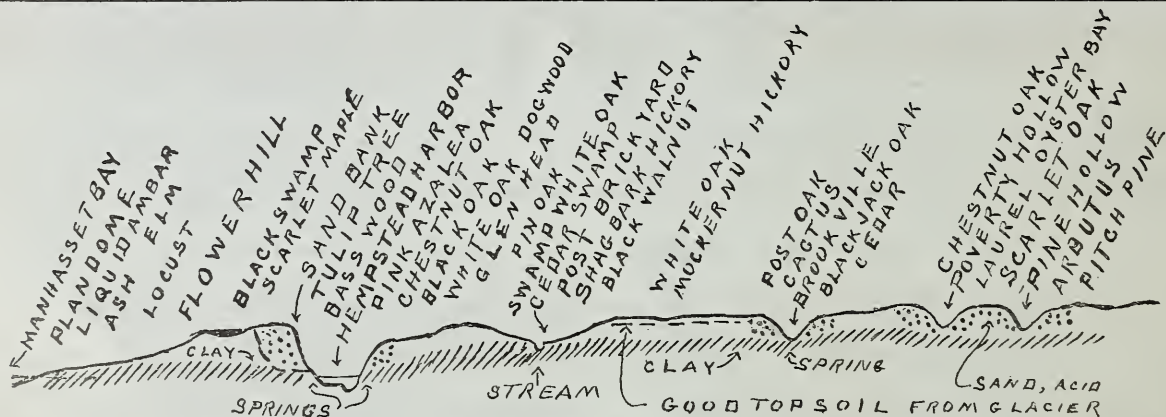 MANHASSET BAY
PLANDOME
LIQUIDAMBAR
ASH ELM
LOCUST
FLOWER HILL
BLACK SWAMP
SCARLET MAPLE
SAND BANK
TULIP TREE
BASS WOOD
HEMPSTEAD HARBOR
PINK AZALEA
CHESTNUT OAK
BLACK OAK
WHITE OAK DOGWOOD
GLEN HEAD
PIN OAK
SWAMP WHITE OAK
CEDAR SWAMP
POST BRICK YARD
SHAGBARK HICKORY
BLACK WALNUT
WHITE OAK
MUCKERNUT HICKORY
POST OAK
CACTUS
BROOKVILLE
BLACK JACK OAK
CEDAR
CHESTNUT OAK
POVERTY HOLLOW
LAUREL OYSTER BAY
SCARLET OAK
PINE HOLLOW
ARBUTUS
PITCH PINE
CLAY
SPRINGS
STREAM
CLAY
SPRING
GOOD TOP SOIL FROM GLACIER
SAND, ACID